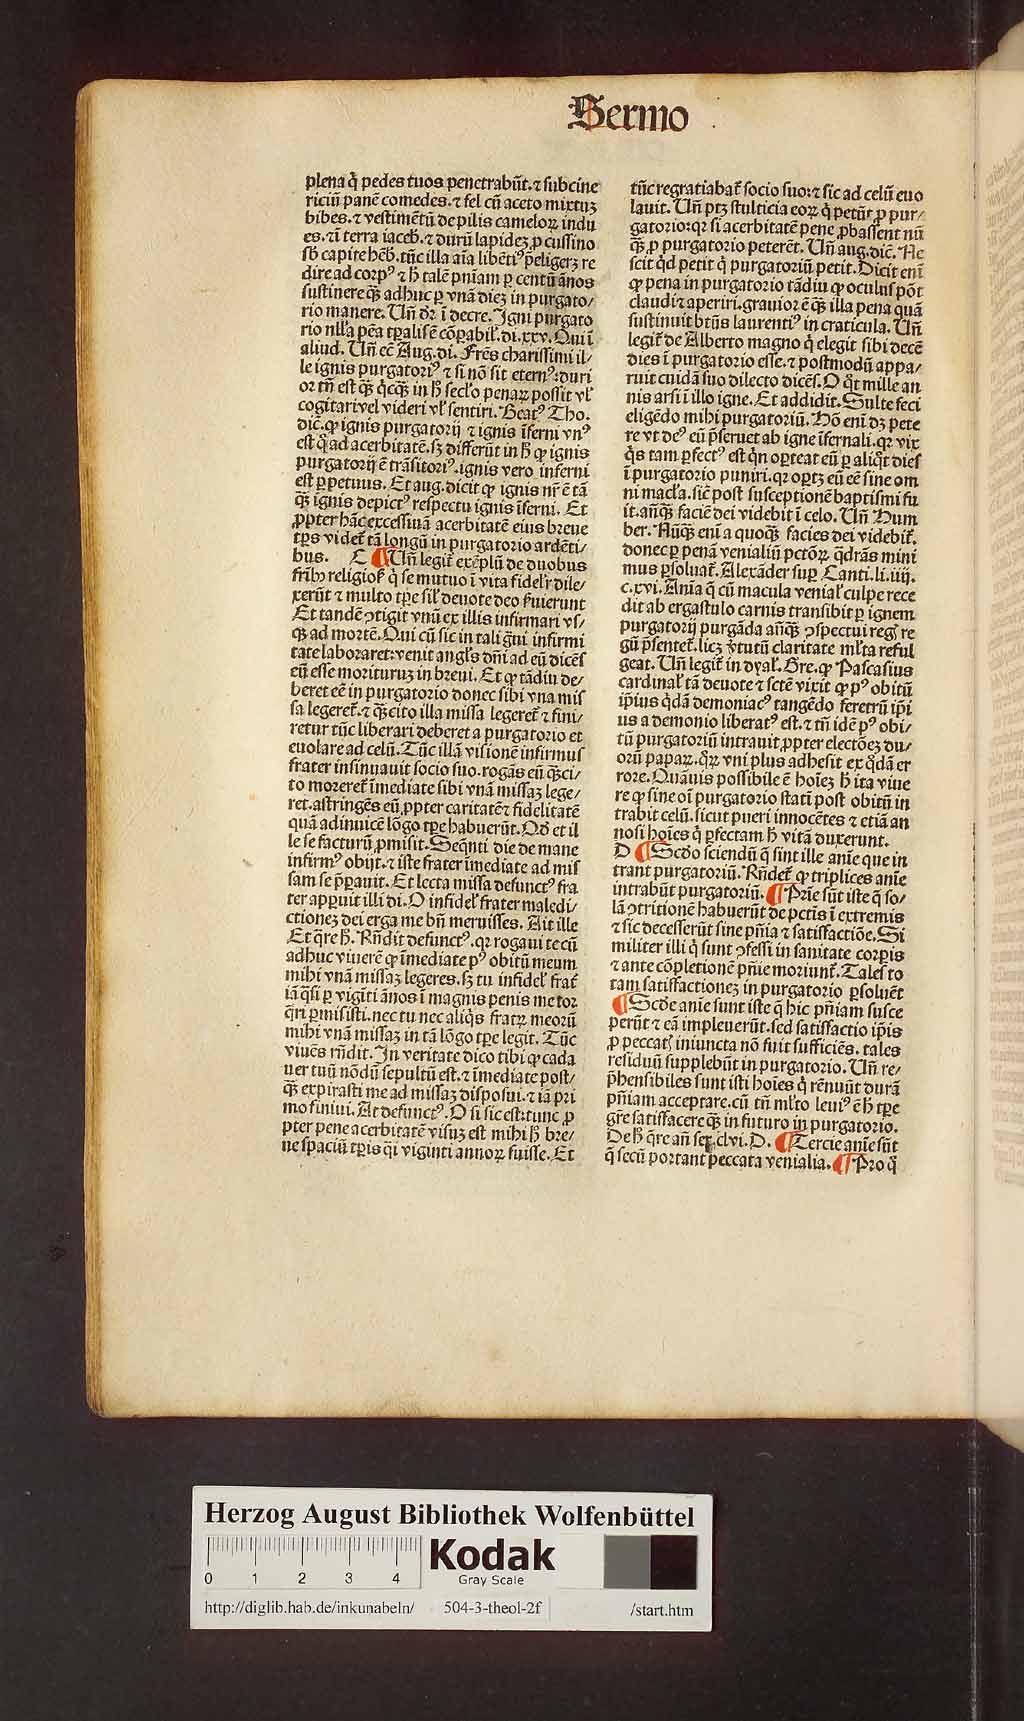 Sermo
plena q̇ pedes tuos penetrabūt. ⁊ subcine
riciū panē comedes. ⁊ fel cū aceto mixtuʒ
bibes. ⁊ vestimētū de pilis cameloꝝ indu
es. ⁊ ī terra iaceb̄. ⁊ durū lapideʒ ꝓ cussino
sb̄ capite hēb̄. tūc illa aīa libētiꝰ p̄eligerʒ re
dire ad corpꝰ ⁊ h̄ talē pn̄iam ꝑ centū ānos
sustinere qꝫ adhuc ꝑ vnā dieʒ in purgato/
rio manere. Un̄ dr̄ ī decre. Igni purgato
rio nll̓a pēa tꝑalis ē cōꝑabil̓. di. xxv. Qui ī
aliud. Un̄ ec̄ Aug. di. Frēs charissimi il/
le ignis purgatoriꝰ ⁊ si nō sit eternꝰ: duri
or tn̄ est qꝫ q̇cqꝫ in h̄ secl̓o penaꝝ possit vl̓
cogitari vel videri vl̓ sentiri. Beatꝰ Tho.
dic̄. ꝙ ignis purgatorij ⁊ ignis īferni vnꝰ
est q̇ ad acerbitatē. sʒ differūt in h̄ ꝙ ignis
purgatorij ē trāsitoriꝰ. ignis vero inferni
est ꝑpetuus. Et aug. dicit ꝙ ignis nr̄ ē tā
qꝫ ignis depictꝰ respectu ignis īferni. Et
ꝓpter hāc excessiuā acerbitatē eius breue
tꝑs videt̄ tā longū in purgatorio ardēti/
bus. C ¶ Un̄ legit̄ exēplū de duobus
frīb᷒ religios̓ q̇ se mutuo ī vita fidel̓r dile/
xerūt ⁊ multo tꝑe sil̓ deuote deo ẜuierunt
Et tandē ↄtigit vnū ex illis infirmari vs/
qꝫ ad mortē. Qui cū sic in tali g̓ui infirmi
tate laboraret: venit angl̓s dn̄i ad eū dicēs
eū esse morituruʒ in breui. Et ꝙ tādiu de/
beret eē in purgatorio donec sibi vna mis
sa legeret̄. ⁊ qꝫcito illa missa legeret̄ ⁊ fini/
retur tūc liberari deberet a purgatorio et
euolare ad celū. Tūc illā visionē infirmus
frater insinuauit socio suo. rogās eū qꝫci/
to moreret̄ īmediate sibi vnā missaʒ lege/
ret. astringēs eū ꝓpter caritatē ⁊ fidelitatē
quā adinuicē lōgo tꝑe habuerūt. Qd̓ et il
le se facturū ꝓmisit. Seqn̄ti die de mane
infirmꝰ obijt. ⁊ iste frater īmediate ad mis
sam se p̄ꝑauit. Et lecta missa defunctꝰ fra
ter apꝑuit illi di. O infidel̓ frater maledi/
ctioneʒ dei erga me bn̄ meruisses. Ait ille
Et q̄re h̄. Rn̄dit defunctꝰ. qꝛ rogaui te cū
adhuc viuerē ꝙ īmediate pꝰ obitū meum
mihi vnā missaʒ legeres. sʒ tu infidel̓ frat̄
iā q̇si ꝑ vigīti ānos ī magnis penis me tor
q̄ri ꝑmisisti. nec tu nec aliq̇s fratꝝ meorū
mihi vnā missaʒ in tā lōgo tꝑe legit. Tūc
viuēs rn̄dit. In veritate dico tibi ꝙ cada
uer tuū nōdū sepultū est. ⁊ īmediate post/
qꝫ expirasti me ad missaʒ disposui. ⁊ iā pri
mo finiui. At defunctꝰ. O si sic est: tunc ꝓ
pter pene acerbitatē visuʒ est mihi h̄ bre/
ue spaciū tꝑis q̇i viginti annoꝝ fuisse. Et
tūc regratiabat̄ socio suo: ⁊ sic ad celū euo
lauit. Un̄ ptʒ stulticia eoꝝ q̇ petūt ꝓ pur/
gatorio: qꝛ si acerbitatē pene ꝓbassent nū
qꝫ ꝓ purgatorio peterēt. Un̄ aug. dic̄. Ne
scit qd̓ petit q̇ purgatoriū petit. Dicit enī
ꝙ pena in purgatorio tādiu ꝙ oculus pōt
claudi ⁊ aperiri. grauior ē qꝫ illa pena quā
sustinuit btūs laurentiꝰ in craticula. Un̄
legit̄ de Alberto magno q̇ elegit sibi decē
dies ī purgatorio esse. ⁊ postmodū appa/
ruit cuidā suo dilecto dicēs. O q̇t mille an
nis arsi ī illo igne. Et addidit. Stulte feci
eligēdo mihi purgatoriū. Hō enī dʒ pete
re vt deꝰ eū p̄seruet ab igne īfernali. qꝛ vix
q̇s tam ꝑfectꝰ est q̇n oꝑteat eū ꝑ aliq̇t dies
ī purgatorio puniri. qꝛ oꝑtʒ eū eē sine om
ni macl̓a. sic̄ post susceptionē baptismi fu
it. anq̄ꝫ faciē dei videbit ī celo. Un̄ Hum
ber. Nūqꝫ enī a quoqꝫ facies dei videbit̄.
donec ꝑ penā venialiū pctōꝝ q̄drās mini
mus ꝑsoluat̄. Alexāder suꝑ Canti. li. iiij.
c. xvi. Anīa q̄ cū macula venial̓ culpe rece
dit ab ergastulo carnis transibit ꝑ ignem
purgatorij purgāda an̄qꝫ ↄspectui regꝭ re
gū p̄sentet̄. licʒ v̓tutū claritate ml̓ta reful
geat. Un̄ legit̄ in dyal̓. Gre. ꝙ Pascasius
cardinal̓ tā deuote ⁊ sctē vixit ꝙ pꝰ obitū
ip̄ius q̇dā demoniacꝰ tangēdo feretrū ip̄i
us a demonio liberatꝰ est. ⁊ tn̄ idē pꝰ obi/
tū purgatoriū intrauit ꝓpter electōeʒ du/
orū papaꝝ. q̇ꝝ vni plus adhesit ex q̇dā er
rore. Quāuis possibile ē hoīeʒ h̄ ita viue
re ꝙ sine oī purgatorio statī post obitū in
trabit celū. sicut pueri innocētes ⁊ etiā an
nosi hoīes q̇ ꝑfectam h̄ vitā duxerunt.
D ¶ Scd̓o sciendū q̄ sint ille anīe que in
trant purgatoriū. Rn̄det̄ ꝙ triplices anīe
intrabūt purgatoriū. ¶ Prīe sūt iste q̄ so/
lā ↄtritionē habuerūt de pctīs ī extremis
⁊ sic decesserūt sine pn̄ia ⁊ satisfactiōe. Si
militer illi q̇ sunt ↄfessi in sanitate corꝑis
⁊ ante cōpletionē pn̄ie moriunt̄. Tales to
tam satisfactioneʒ in purgatorio ꝑsoluēt
¶ Scd̓e anīe sunt iste q̄ hic pn̄iam susce
perūt ⁊ eā impleuerūt. sed satisfactio ip̄is
ꝓ peccatꝭ iniuncta nō fuit sufficiēs. tales
residuū supplebūt in purgatorio. Un̄ re/
p̄hensibiles sunt isti hoīes q̇ rēnuūt durā
pn̄iam acceptare. cū tn̄ ml̓to leuiꝰ ē h̄ tꝑe
gr̄e satisfacere qꝫ in futuro in purgatorio.
De h̄ q̄re an̄ ser. clvi. D. ¶ Tercie anīe sūt
q̄ secū portant peccata venialia. ¶ Pro q̇
Herzog August Bibliothek Wolfenbüttel
0 1 2 3 4
Kodak
Gray Scale
http://diglib.hab.de/inkunabeln/ 504-3-theol-2f /start.htm